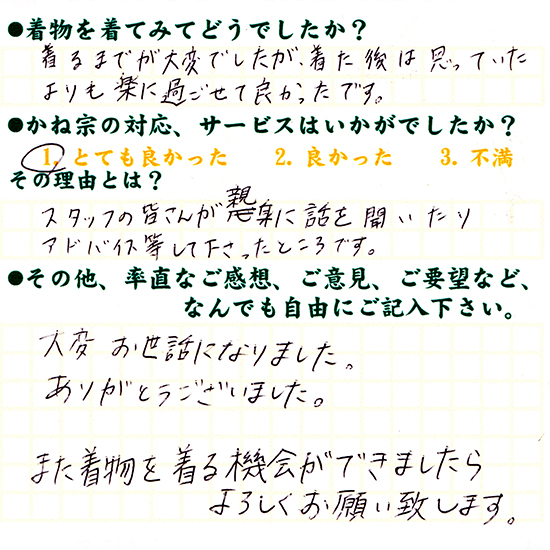 ●着物を着てみてどうでしたか？
着るまでが大変でしたが、着た後は思っていた
よりも楽に過ごせて良かったです。
●かね宗の対応、サービスはいかがでしたか？
1. とても良かった　2. 良かった　3. 不満
その理由とは？
スタッフの皆さんが親楽に話を聞いたり
アドバイス等して下さったところです。
●その他、率直なご感想、ご意見、ご要望など、
なんでも自由にご記入下さい。
大変お世話になりました。
ありがとうございました。
また着物を着る機会ができましたら
よろしくお願い致します。